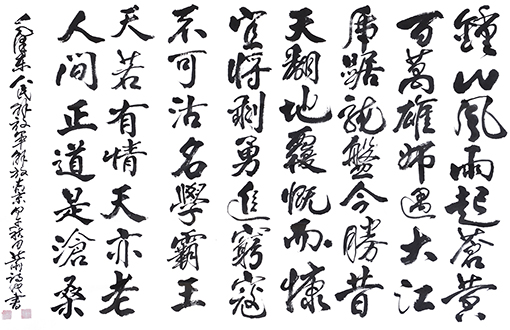 鍾山風雨起蒼黄
百萬雄師過大江
虎踞龍盤今勝昔
天翻地覆慨而慷
宜將剩勇追窮寇
不可沽名學霸王
天若有情天亦老
人間正道是滄桑
毛澤東人民解放軍解放南京